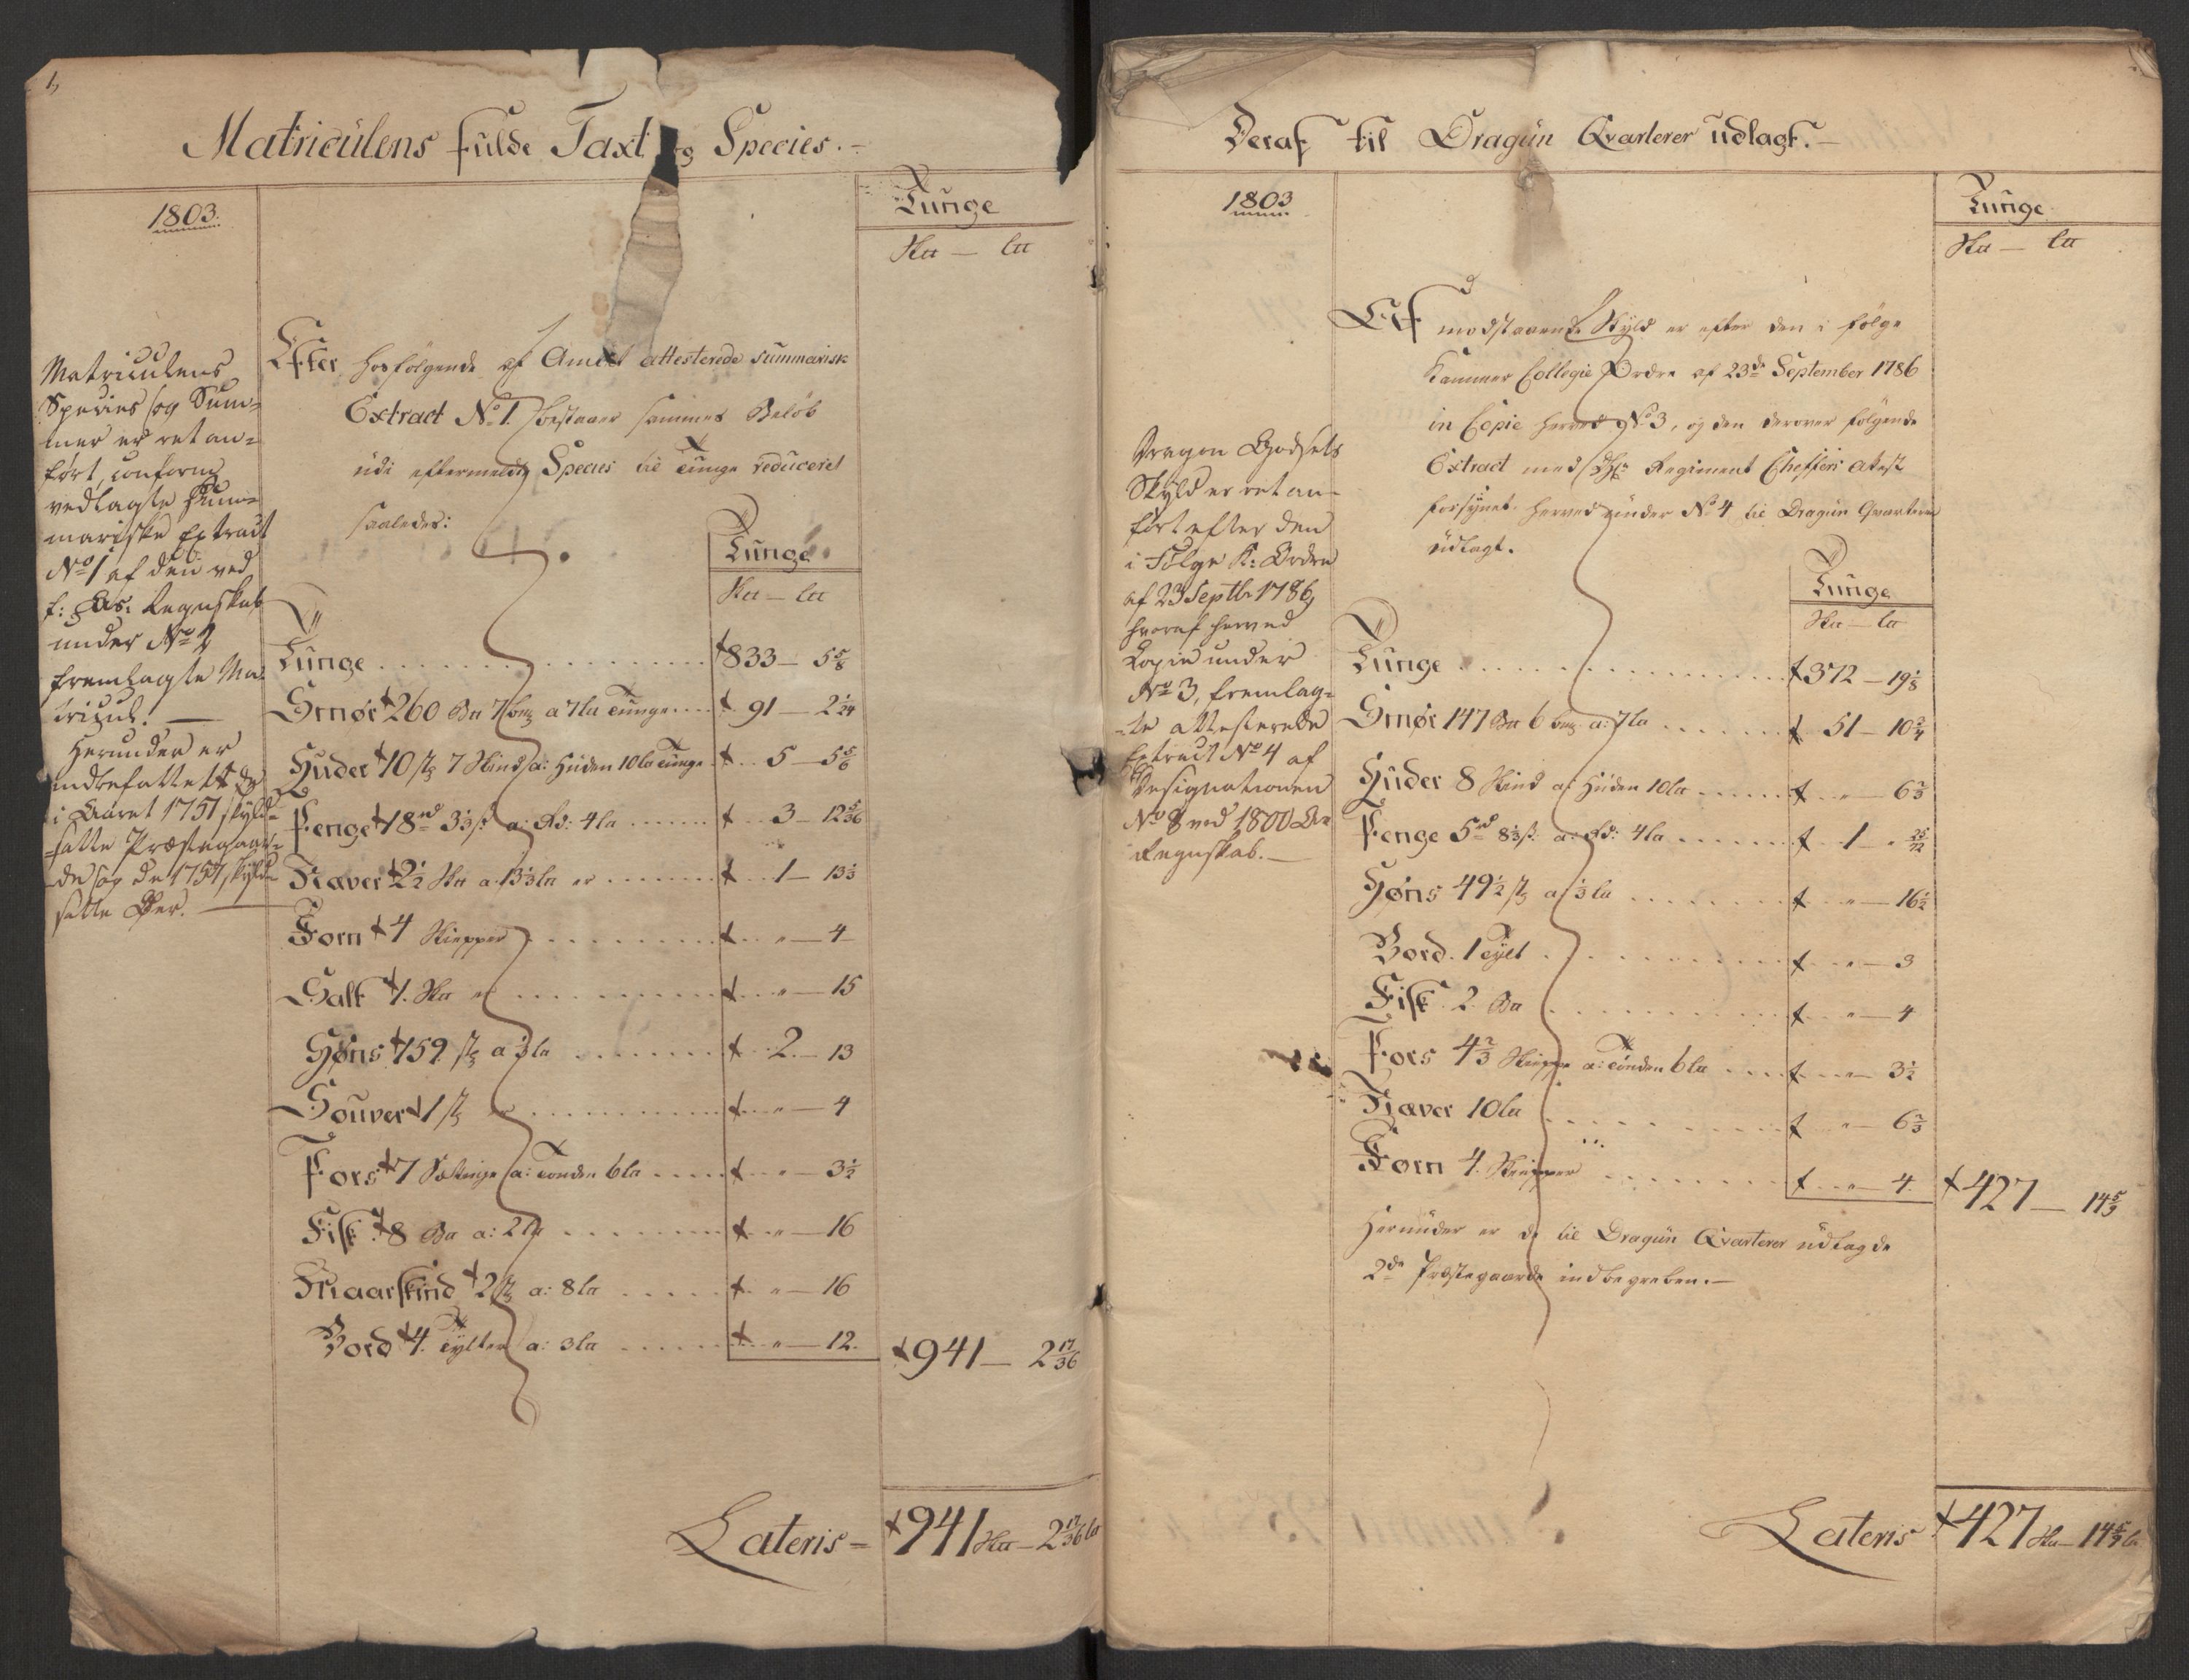 1,
Matriculens fulde Taxt og Species.
1803.
Tunge
Hu — la
Matriculens
Species og Sum=
mer er ret an=
ført, conform
vedlagte Sum=
mariske Extract
No 1 af den ved
f: Aars Regnskab
under No 2
fremlagte Ma
tricul. —
Herunder er
indbefattet de
i Aaret 1751 skyld=
satte Præstegaar=
de og de 1757 skyld=
satte
Efter hosfølgende af Amtet attesterede summarisk
Extract No 1. bestaaer sammes Beløb
udi eftermeldte Species til Tunge reduceret
saaledes:
Tunge
Hu — la
Tunge 833 — 5 5/8
Smør 260 Bu 7 a 7 la Tunge 91 — 2 1/24
Huder 10 st 7 Skind a: Huden 10 la Tunge 5 — 5 5/6
Penge 18 rd 3 1/3 s. a: Rd: 4 la 3 — 12 5/36
Næver 2 1/2 Hu a 13 1/3 la er 1 — 13 1/3
Korn 4 Skiepper „ — 4
Salt 1. Hu er „ — 15
Høns 159 st a 1/3 la 2 — 13
Souver 1 st er „ — 4
Pors 7 Sættinge a: Tonden 6 la „ — 3 1/2
Fisk 8 Bu a: 2 la „ — 16
Maarskind 2 st a: 8 la „ — 16
Bord 4. Tylter a: 3 la „ — 12.
941 — 2 17/36
Lateris = 941 Hu — 2 17/36 la
Deraf til Dragun Qvarterer udlagt. —
1803
Tunge
Hu — la
Dragon Godsets
Skyld er ret an=
ført efter den
i Følge K: Ordre
af 23 Septbr 1786,
hvoraf herved
Copie under
No 3, fremlag=
te attesterede
Extract No 4 af
Designationen
No 8 ved 1800 Aars
Regnskab. —
Af modstaaende Skyld er efter den i følge
Kammer Collegie Ordre af 23de September 1786
in Copie herved No 3, og den derover følgende
Extract med Regiment Cheffens attest
forsynet herved under No 4 til Dragun Qvarterer
udlagt.
Tunge
Hu — la
Tunge 372 — 19 1/8
Smør 147 Bu 6 a: 7 la 51 — 10 3/4
Huder 8 Skind a: Huden 10 la „ — 6 2/3
Penge 5 rd 8 1/3 s. a: Rd: 4 la 1 — „ 25/72
Høns 49 1/2 st a 1/3 la „ — 16 1/2
Bord. 1 Tylt „ — 3
Fisk 2. Bu „ — 4
Pors 4 2/3 Skiepper a: Tonden 6 la „ — 3 1/2
Næver 10 la „ — 6 2/3
Korn 4. Skiepper „ — 4.
427 — 14 5/9
Herunder er de til Dragun Qvarterer udlagde
2de Præstegaarde indbegreben. —
Lateris 427 Hu — 14 5/9 la